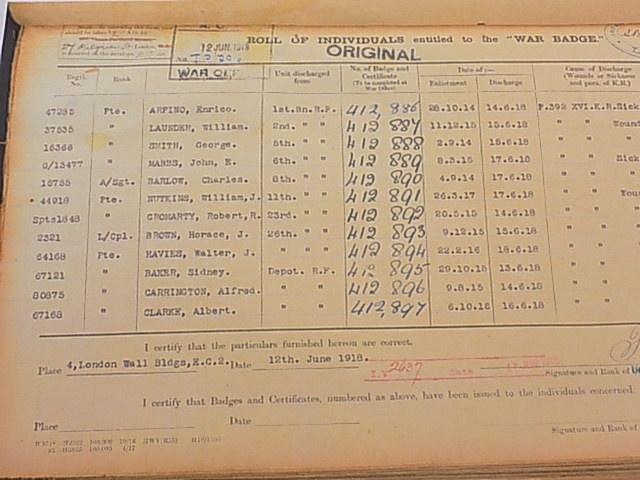 12 JUN. 1918
ROLL OF INDIVIDUALS entitled to the "WAR BADGE."
ORIGINAL
WAR OF
Regtl. No. Rank Unit discharged from No. of Badge and Certificate (To be completed at War Office) Date of:— Enlistment. Discharge Cause of Discharge (Wounds or Sickness and para. of K.R.)
47285 Pte. ARPINO, Enrico. 1st.Bn.R.F. 412,886 28.10.14 14.6.18 P.392 XVI.K.R.Sick
37535 " LAUNDER, William. 2nd. " " 412 887 11.12.15 15.6.18 " " Wound
16366 " SMITH, George. 5th. " " 412 888 2.9.14 15.6.18 " "
G/13477 " MABBS, John, E. 6th. " " 412 889 8.3.15 17.6.18 " " Sick
16755 A/Sgt. BARLOW, Charles. 8th. " " 412 890 4.9.14 17.6.18 " "
44918 Pte. NUTKINS, William,J. 11th. " " 412 891 26.3.17 17.6.18 " " Woun
Spts1848 " CROMARTY, Robert,R. 23rd. " " 412 892 20.5.15 14.6.18 " "
2321 L/Cpl. BROWN, Horace, J. 26th. " " 412 893 9.12.15 15.6.18 " "
64168 Pte. HAVIES, Walter, J. " " " 412 894 22.2.16 18.6.18 " "
67121 " BAKER, Sidney. Depot. R.F. 412 895 29.10.15 13.6.18 " "
80875 " CARRINGTON, Alfred. " " 412 896 9.8.15 14.6.18 " "
67168 " CLARKE, Albert. " " 412,897 6.10.16 16.6.18 " "
I certify that the particulars furnished hereon are correct.
Place 4,London Wall Bldgs,E.C.2. Date 12th. June 1918.
2637 Date
Signature and Rank of
I certify that Badges and Certificates, numbered as above, have been issued to the individuals concerned.
Place Date
Signature and Rank of